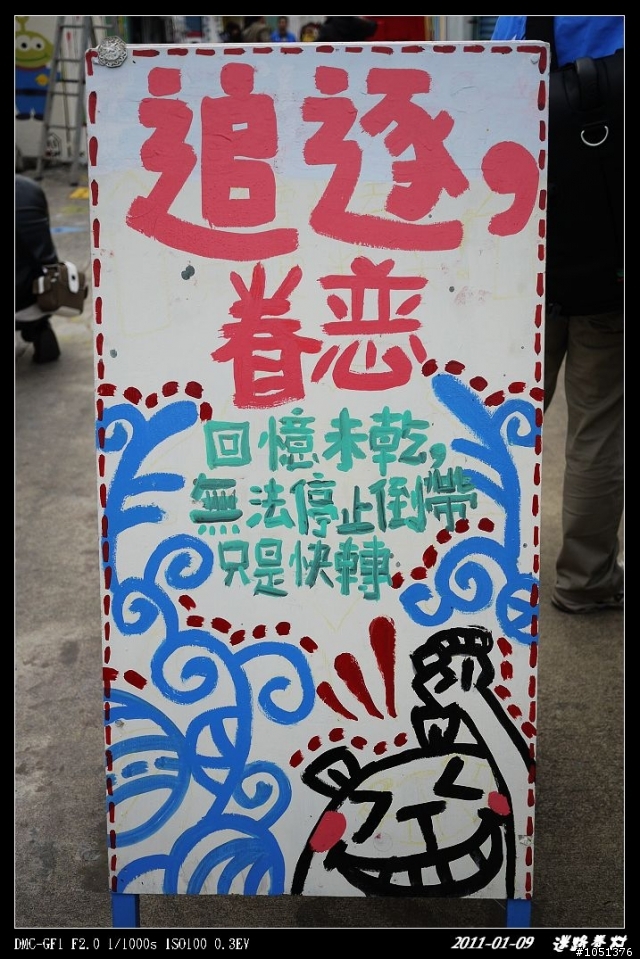 追逐，
眷恋
回憶未乾，
無法停止倒帶
只是快轉
DMC-GF1 F2.0 1/1000s ISO100 0.3EV
2011-01-09
#1051376